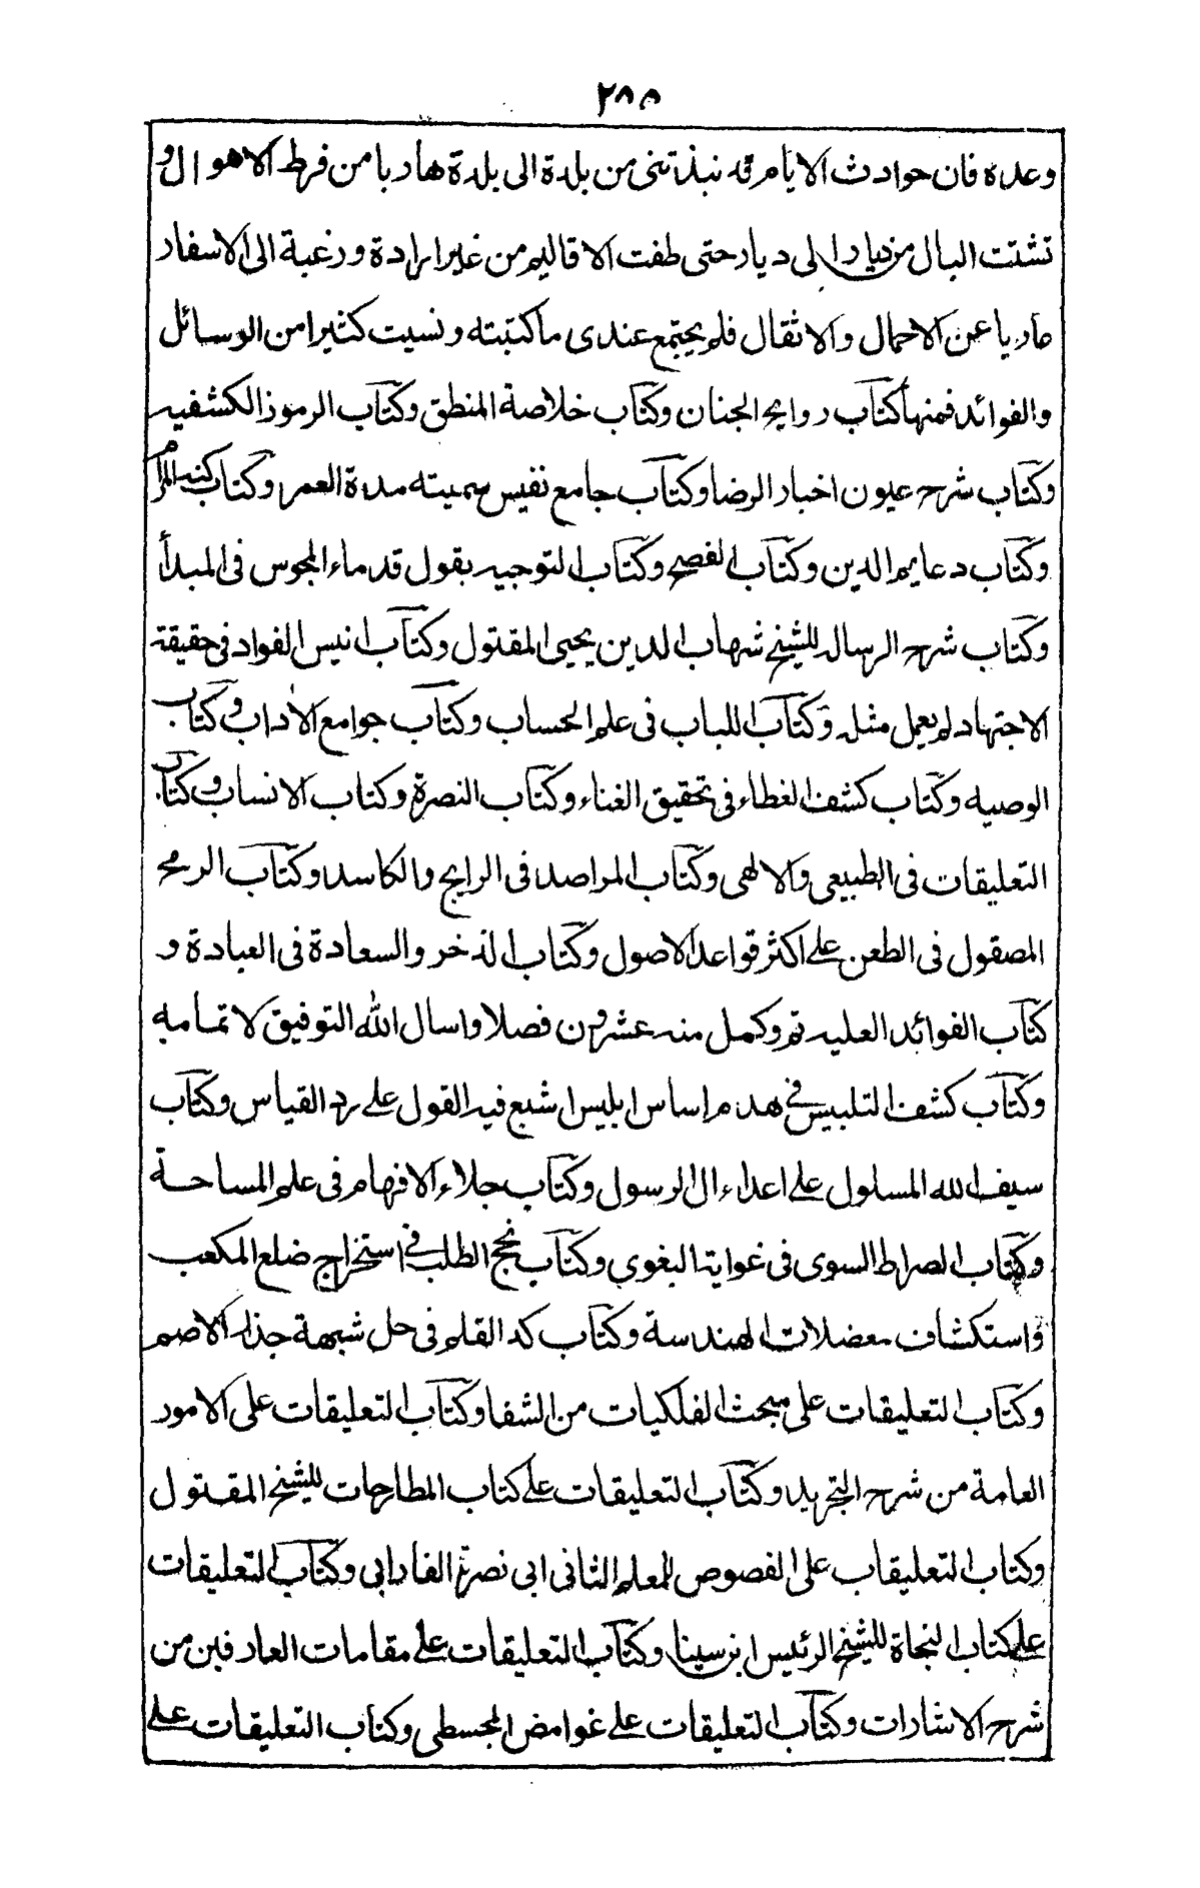 ٢٨٥
وعده فان حوادث الايام قد نبذتنى من بلدة الى بلدة هاربا من فرط الاهوال و
تشتت البال من ديار الى ديار حتى طفت الاقاليم من غير ارادة ورغبة الى الاسفار
عاريا عن الاحمال والاثقال فلم يجتمع عندى ما كتبته ونسيت كثيرا من الوسائل
والفوائد فمنها كتاب روايح الجنان وكتاب خلاصة المنطق وكتاب الرموز الكشفيه
وكتاب شرح عيون اخبار الرضا وكتاب جامع نفيس سميته مدة العمر وكتاب كنه المرام
وكتاب دعايم الدين وكتاب الفصح وكتاب التوجيه بقول قدماء المجوس فى المبدأ
وكتاب شرح الرساله للشيخ شهاب الدين يحيى المقتول وكتاب انيس الفواد فى حقيقة
الاجتهاد لم يعمل مثله وكتاب اللباب فى علم الحساب وكتاب جوامع الاداب وكتاب
الوصيه وكتاب كشف الغطاء فى تحقيق الغناء وكتاب النصرة وكتاب الانساب وكتاب
التعليقات فى الطبيعى والالهى وكتاب المراصد فى الرايج والكاسد وكتاب الرمح
المصقول فى الطعن على اكثر قواعد الاصول وكتاب الذخر والسعادة فى العبادة و
كتاب الفوائد العليه تم وكمل منه عشرون فصلا واسال الله التوفيق لاتمامه
وكتاب كشف التلبيس فى هدم اساس ابليس اشبع فيه القول على رد القياس وكتاب
سيف الله المسلول على اعداء ال الرسول وكتاب جلاء الافهام فى علم المساحة
وكتاب الصراط السوى فى غواية البغوى وكتاب نجح الطلب فى استخراج ضلع المكعب
واستكشاف معضلات الهندسة وكتاب كد القلم فى حل شبهة جذر الاصم
وكتاب التعليقات على مبحث الفلكيات من الشفا وكتاب التعليقات على الامور
العامة من شرح التجريد وكتاب التعليقات على كتاب المطارحات للشيخ المقتول
وكتاب التعليقاب على الفصوص للمعلم الثانى ابى نصر الفارابى وكتاب التعليقات
على كتاب النجاة للشيخ الرئيس ابن سينا وكتاب التعليقات على مقامات العارفين من
شرح الاشارات وكتاب التعليقات على غوامض المجسطى وكتاب التعليقات على